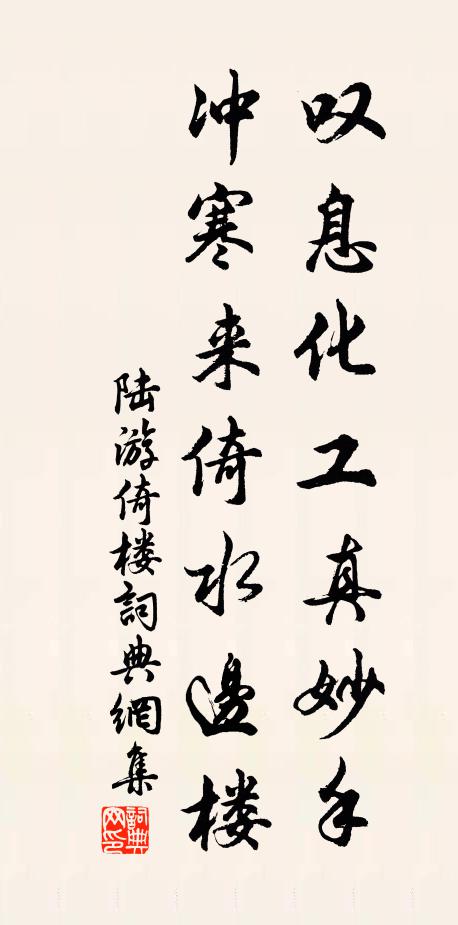 叹息化工真妙手
冲寒来倚水边楼
陆游倚楼詞典網集
詞典网印